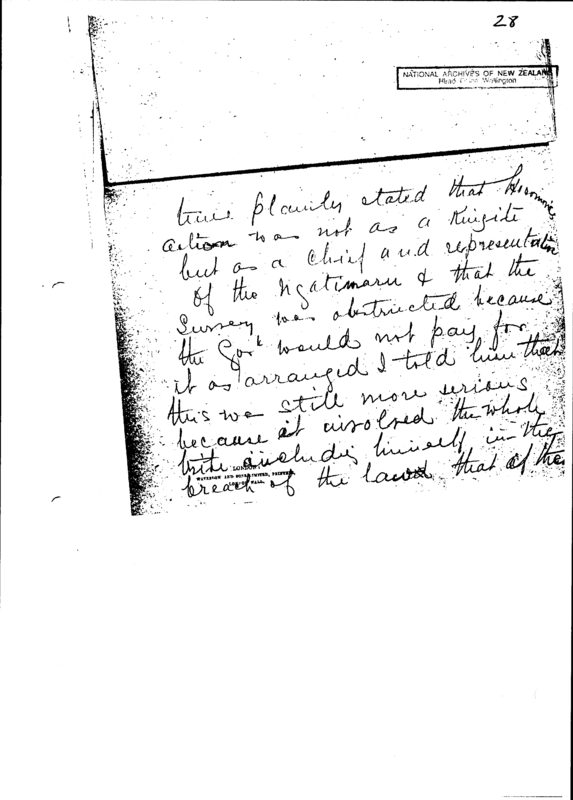 28
NATIONAL ARCHIVES OF NEW ZEALAND
Head Office Wellington
time plainly stated that
action was not as a Kingite
but as a Chief and representative
of the Ngatimaru & that the
Survey was obstructed because
the Govt would not pay for
it as arranged I told him that
this was still more serious
because it involved the whole
tribe including himself in the
breach of the law & that if the
LONDON
WATERLOW AND SONS LIMITED, PRINTERS,
LONDON WALL.